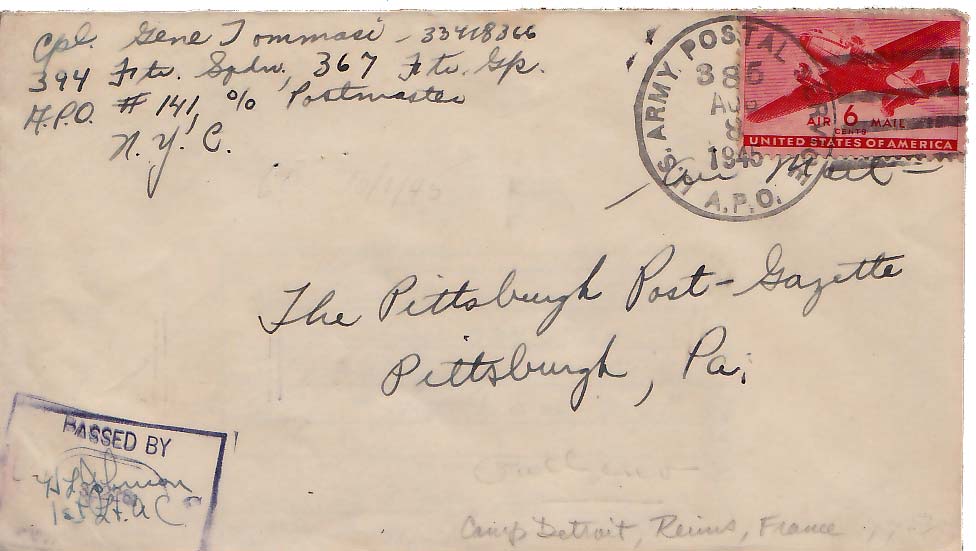 Cpl. Gene Tommasi - 33418366
394 Ftr. Sqdn, 367 Ftr. Gp.
A.P.O. # 141, % Postmaster
N.Y.C.
U.S. ARMY POSTAL SERVICE
385
AUG
8
1945
A.P.O.
AIR 6 MAIL
CENTS
UNITED STATES OF AMERICA
Air Mail
The Pittsburgh Post-Gazette
Pittsburgh, Pa.
PASSED BY
1st Lt. A C
Camp Detroit, Reims, France